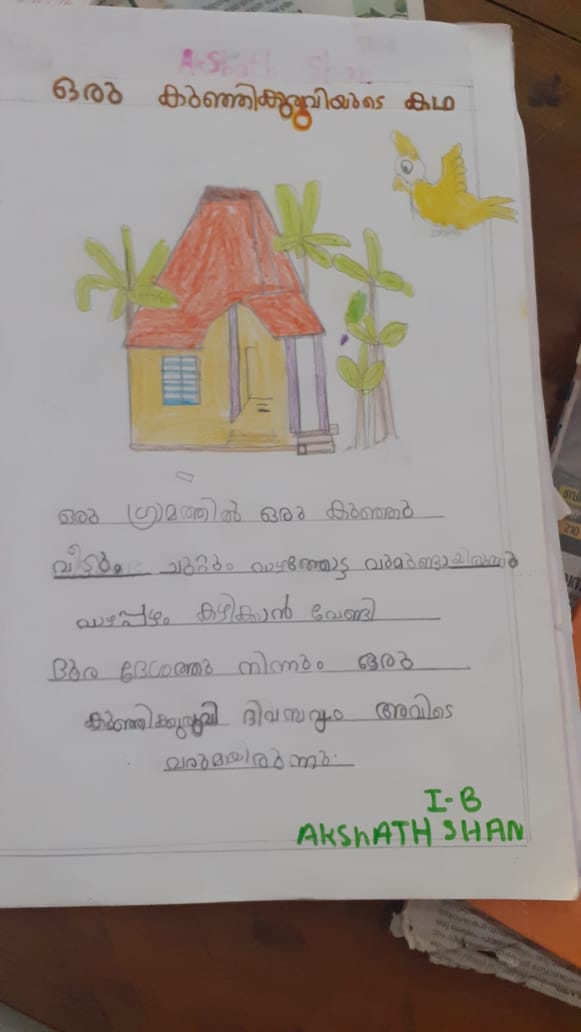 Akshath Shan
ഒരു കുഞ്ഞിക്കുരുവിയുടെ കഥ
ഒരു ഗ്രാമത്തിൽ ഒരു കുഞ്ഞു
വീടും ചുറ്റും വാഴത്തോട്ടവുമുണ്ടായിരുന്നു
വാഴപ്പഴം കഴിക്കാൻ വേണ്ടി
ദൂര ദേശത്തു നിന്നും ഒരു
കുഞ്ഞിക്കുരുവി ദിവസവും അവിടെ
വരുമായിരുന്നു.
I-B
AKShATH SHAN